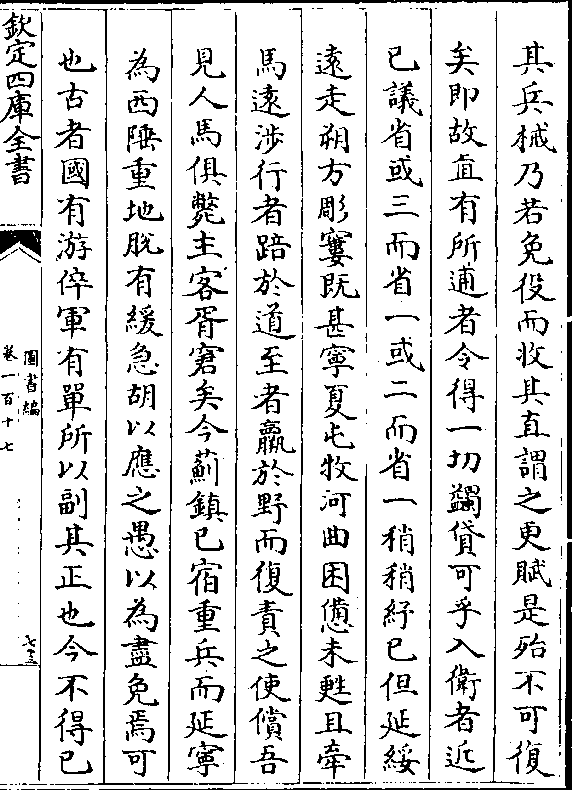 其兵械乃若免役而收其直謂之更賦是殆不可復
矣即故直有所逋者令得一切蠲貸可乎入衛者近
已議省或三而省一或二而省一稍稍紓已但延綏
遠走朔方彫寠既甚寧夏屯牧河曲困憊未甦且牽
馬遠涉行者踣於道至者羸於野而復責之使償吾
見人馬俱斃主客胥窘矣今薊鎮已宿重兵而延寧
為西陲重地脫有緩急胡以應之愚以為盡免焉可
也古者國有游倅軍有單所以副其正也今不得已
欽定四庫全書
圖書編
卷一百十七